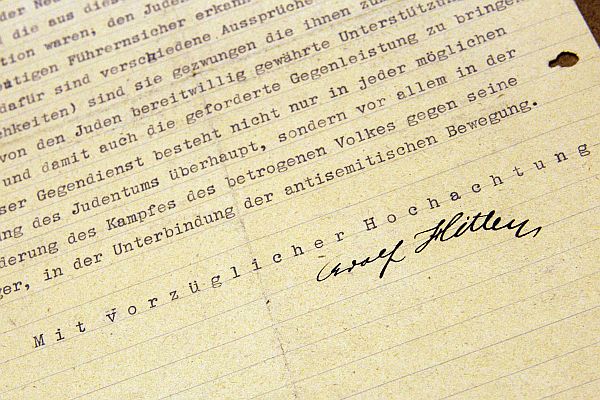 der Ne
die aus diese
tion waren, den Juden
utigen Führern sicher erkann
dafür sind verschiedene Aussprüche
chkeiten) sind sie gezwungen die ihnen zu
von den Juden bereitwillig gewährte Unterstützun
und damit auch die geforderte Gegenleistung zu bringen
ser Gegendienst besteht nicht nur in jeder möglichen
ung des Judentums überhaupt, sondern vor allem in der
derung des Kampfes des betrogenen Volkes gegen seine
ger, in der Unterbindung der antisemitischen Bewegung.
Mit vorzüglicher Hochachtung
Adolf Hitler